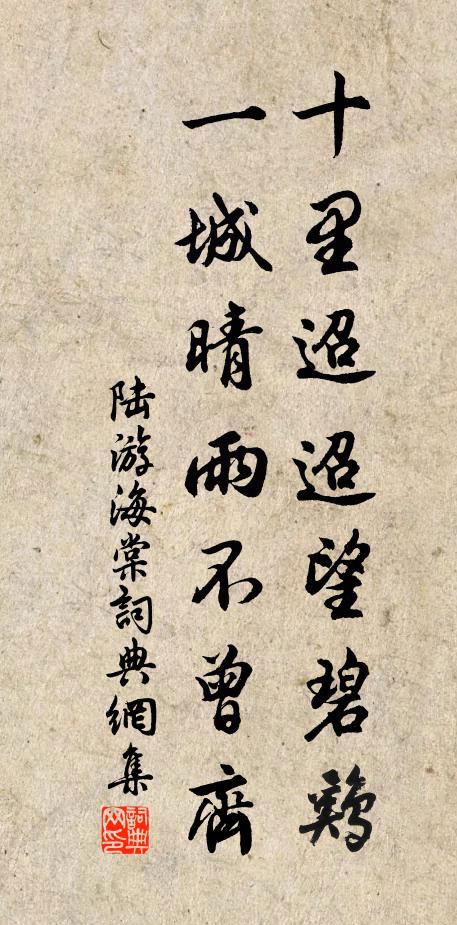 十里迢迢望碧鷄
一城晴雨不曾齊
陆游海棠詞典網集
詞典网印